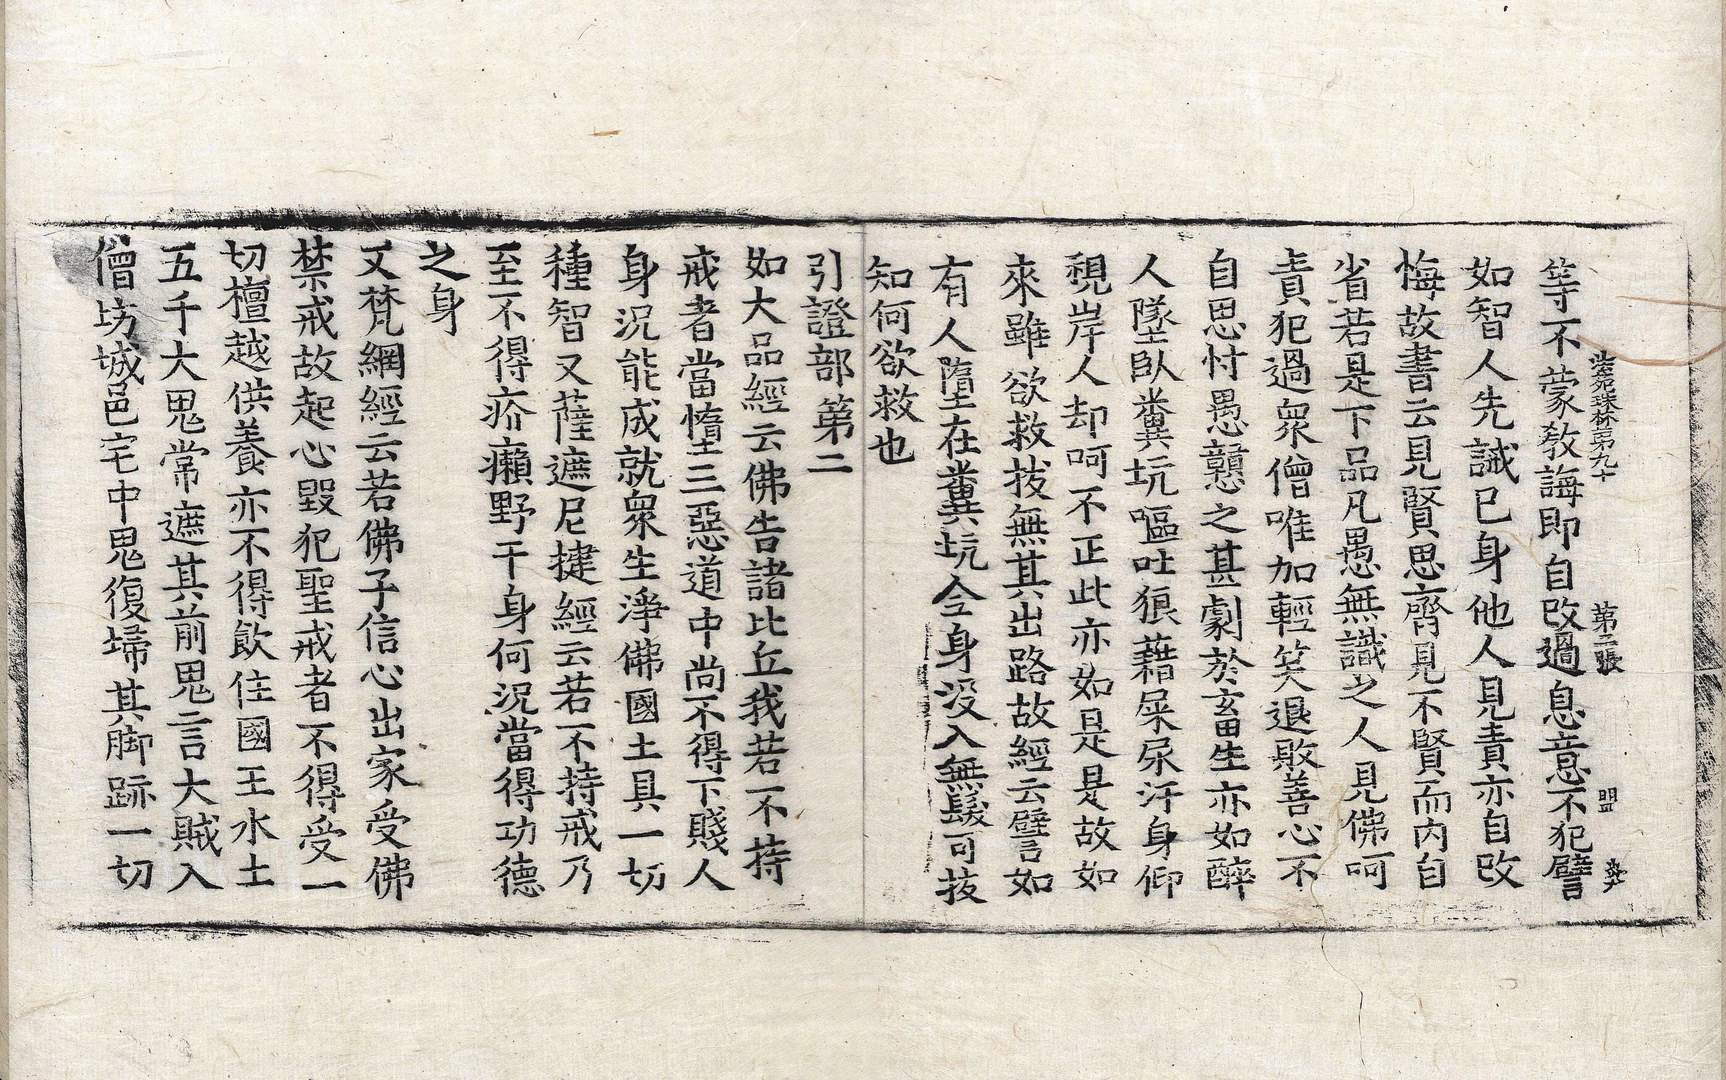 法苑珠林第九十 第二張 盟
等不蒙教誨即自改過息意不犯譬
如智人先誡己身他人見責亦自改
悔故書云見賢思齊見不賢而內自
省若是下品凡愚無識之人見佛呵
責犯過衆僧唯加輕笑退敗善心不
自思忖愚戇之甚劇於畜生亦如醉
人墜臥糞坑嘔吐狼藉屎尿汙身仰
視岸人却呵不正此亦如是是故如
來雖欲救拔無其出路故經云譬如
有人墮在糞坑令身没入無髮可拔
知何欲救也
引證部第二
如大品經云佛告諸比丘我若不持
戒者當墮三惡道中尚不得下賤人
身况能成就衆生淨佛國土具一切
種智又薩遮尼揵經云若不持戒乃
至不得疥癩野干身何况當得功德
之身
又梵網經云若佛子信心出家受佛
禁戒故起心毀犯聖戒者不得受一
切檀越供養亦不得飲住國王水土
五千大鬼常遮其前鬼言大賊入
僧坊城邑宅中鬼復埽其脚跡一切